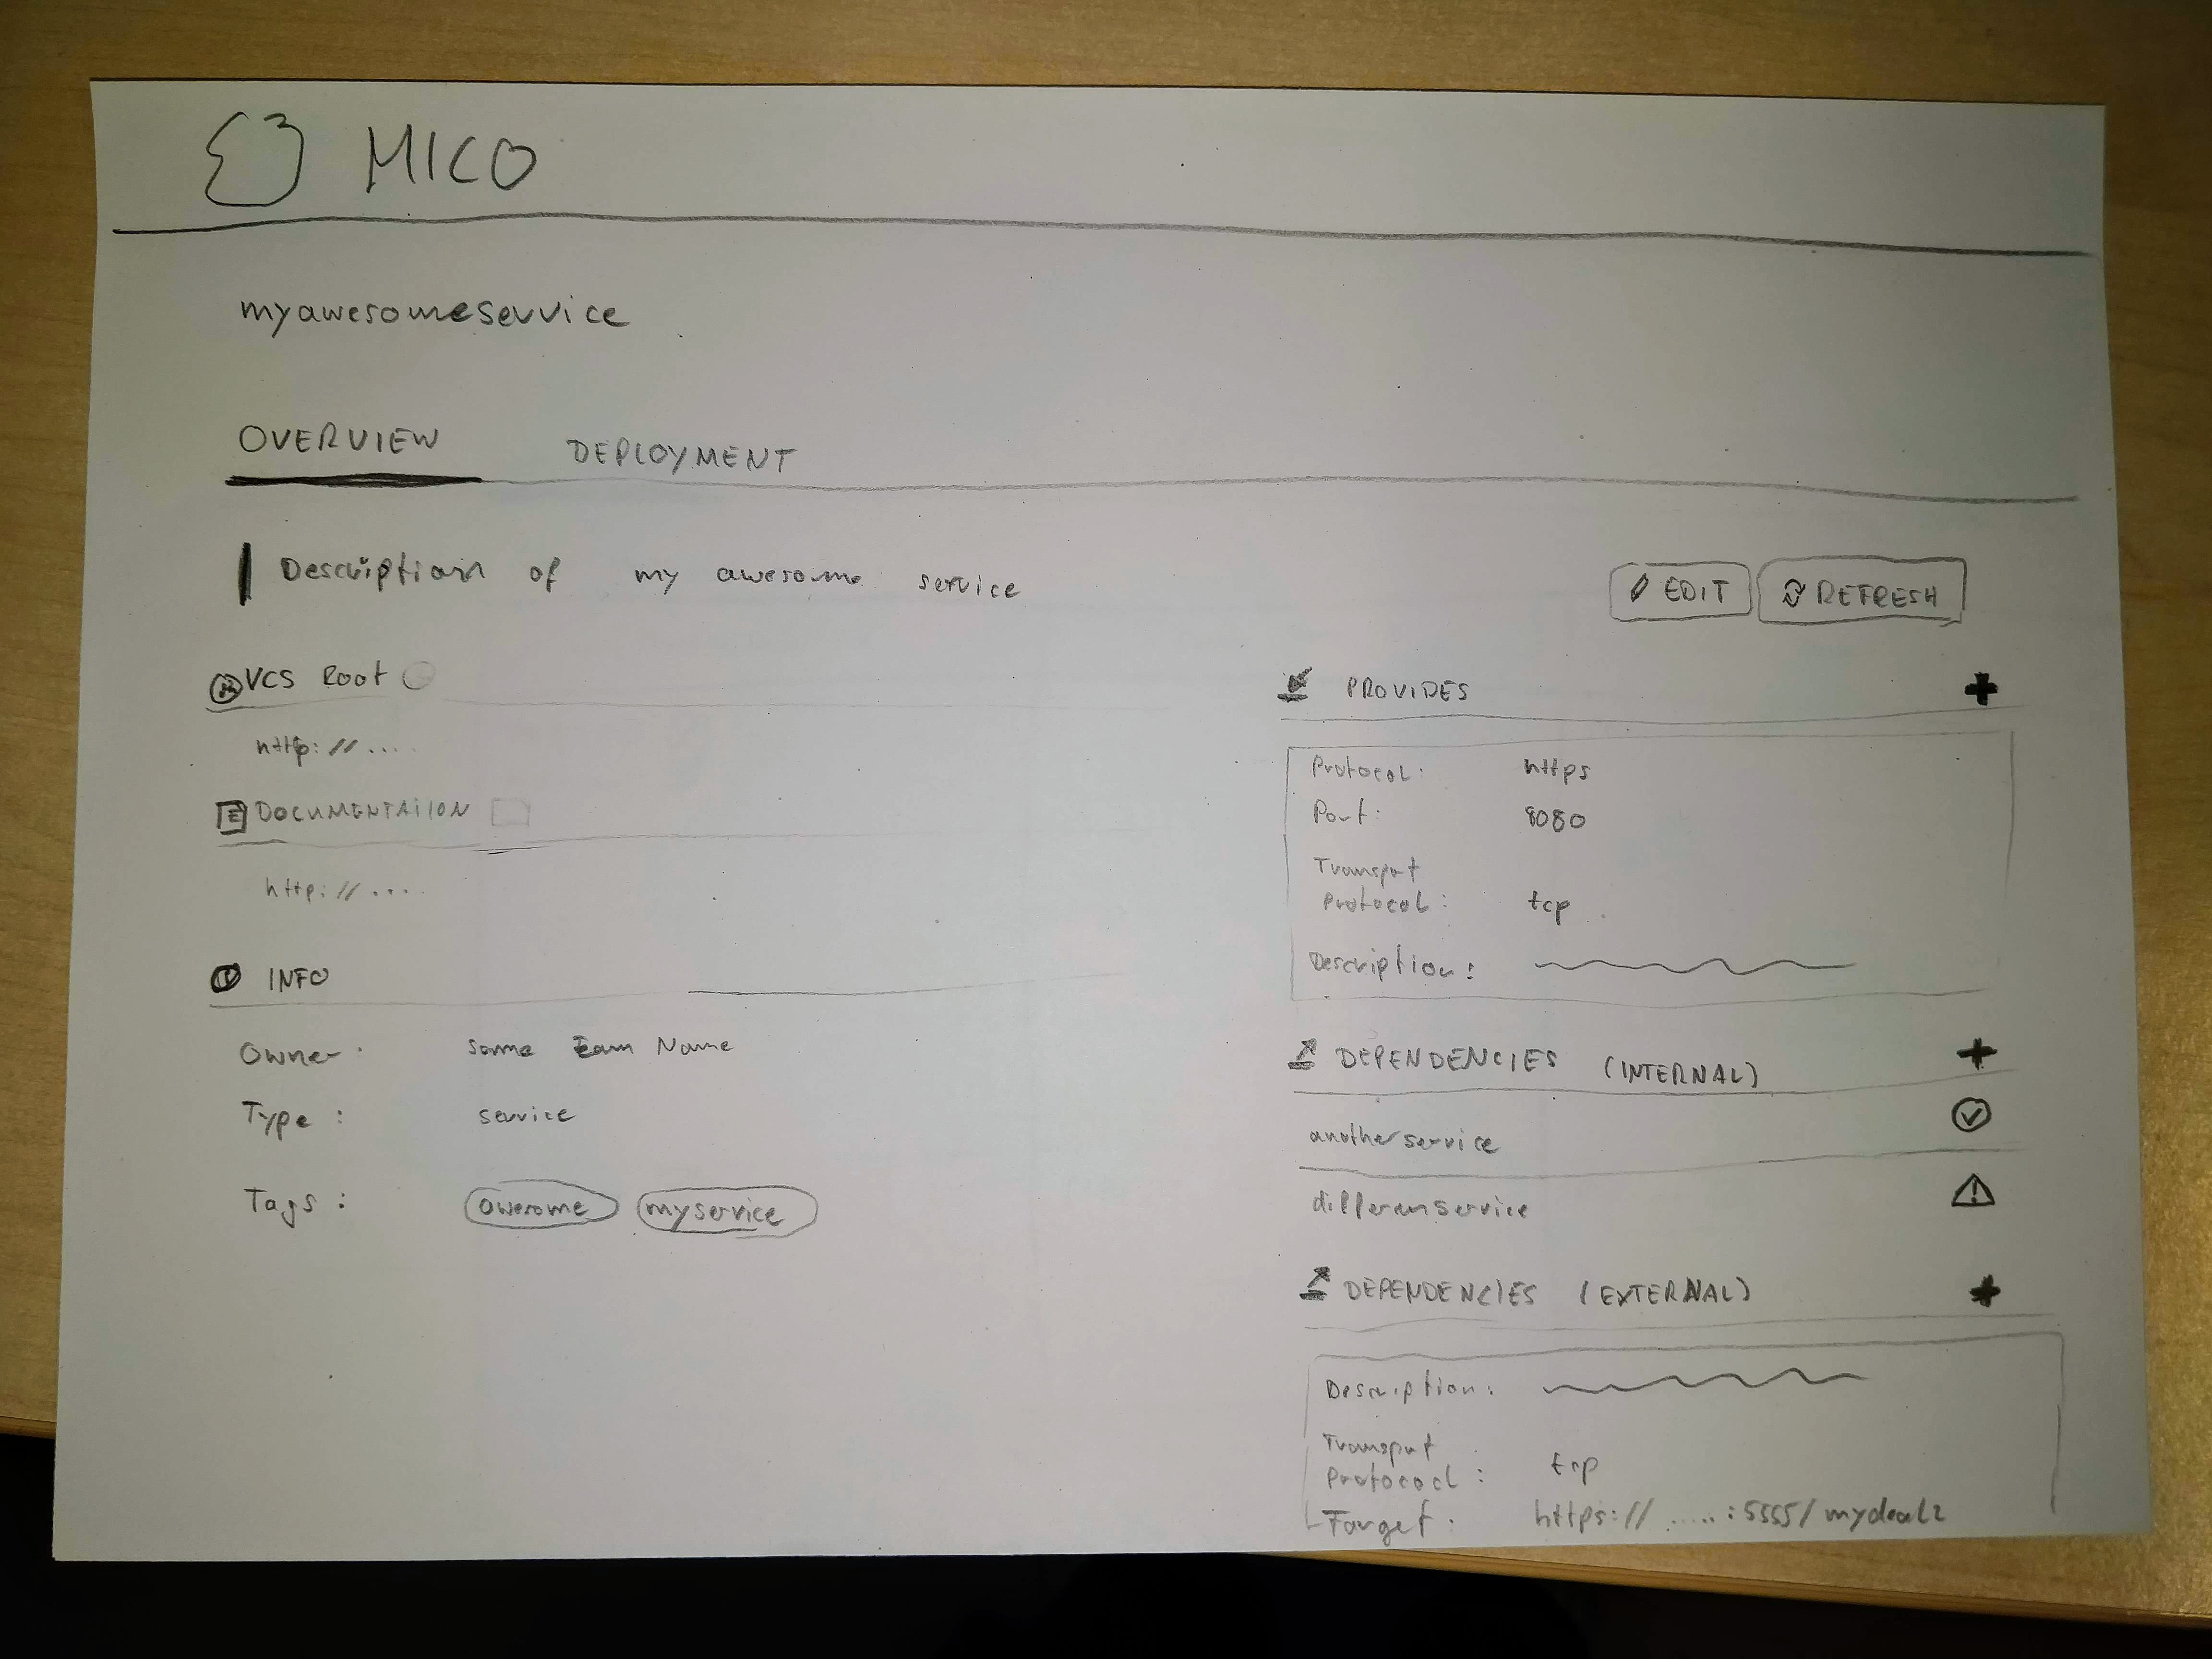 MICO
myawesomeservice
OVERVIEW DEPLOYMENT
Description of my awesome service
EDIT REFRESH
VCS Root
http://....
DOCUMENTATION
http://....
INFO
Owner: Some Team Name
Type: service
Tags: awesome myservice
PROVIDES +
Protocol: https
Port: 8080
Transport
Protocol: tcp
Description:
DEPENDENCIES (INTERNAL) +
anotherservice
differenservice
DEPENDENCIES (EXTERNAL) +
Description:
Transport
Protocol: tcp
Target: https://.....:5555/